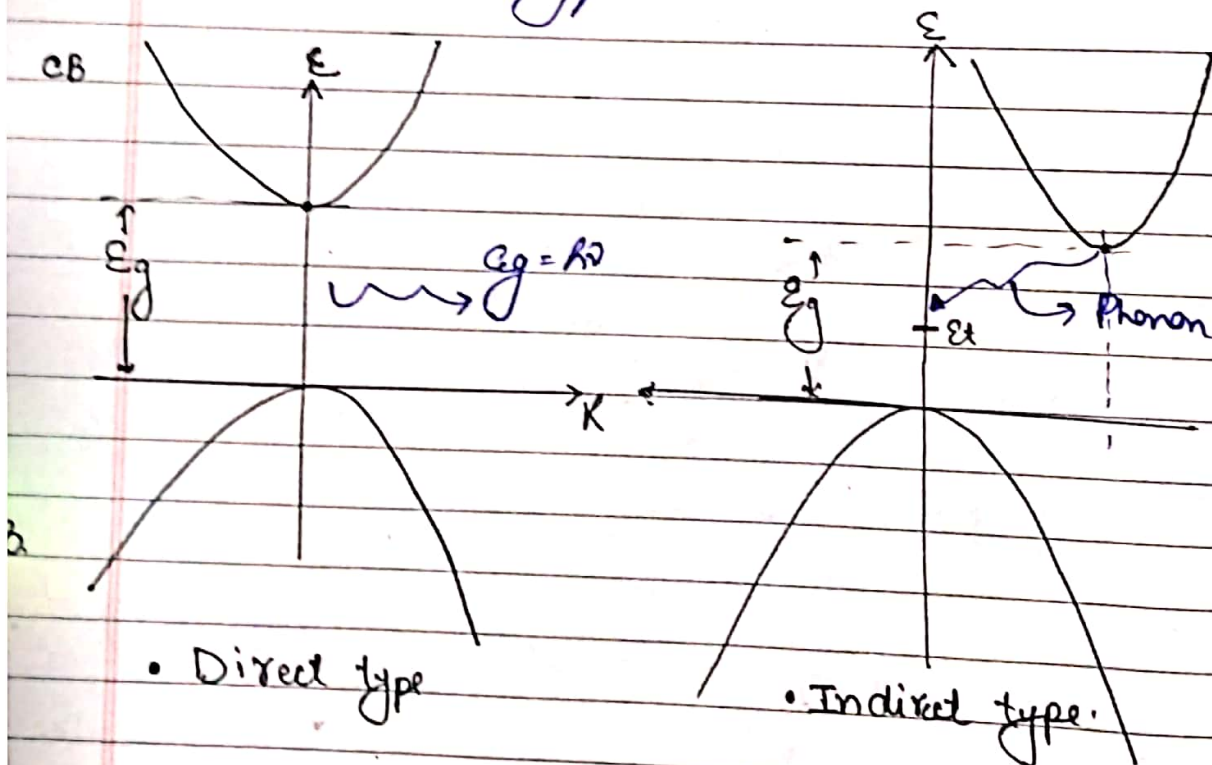 CB
ε
Eg
Eg = hν
K
• Direct type
ε
Eg
Et
Phonon
• Indirect type.